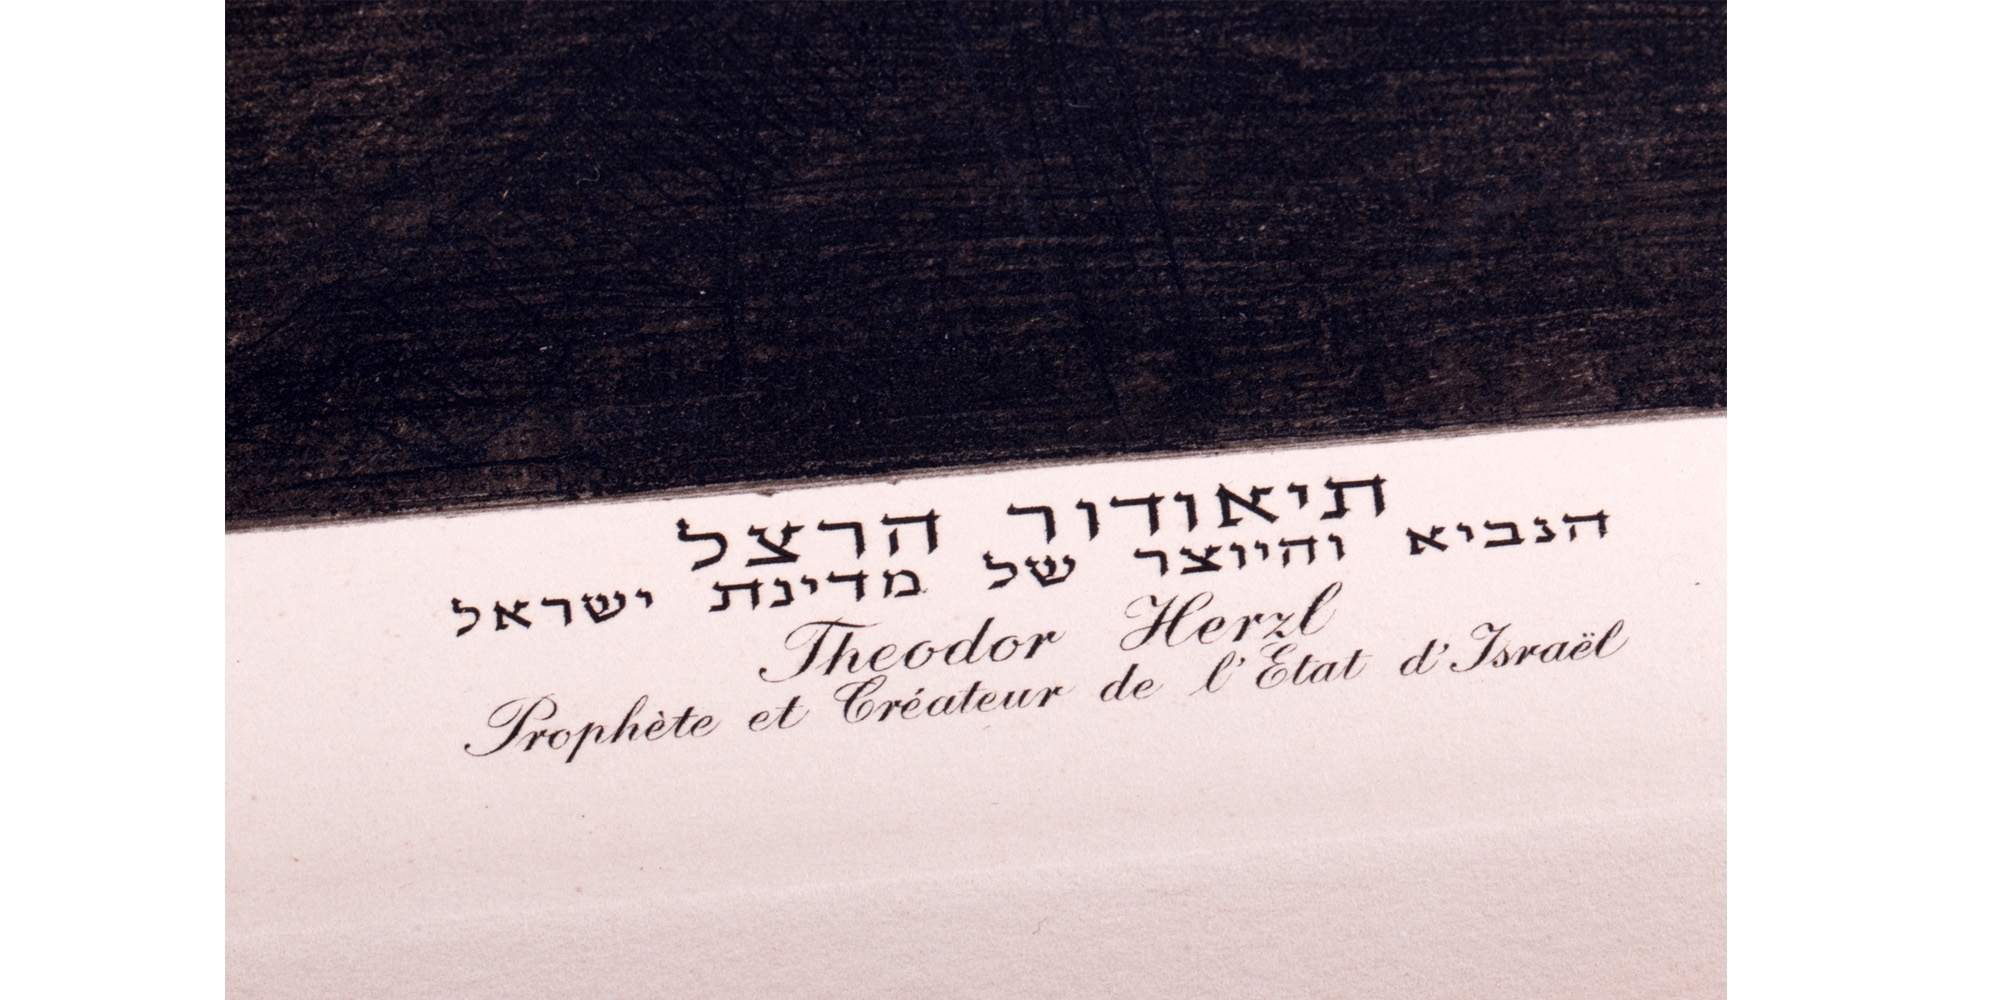 תיאודור הרצל
הנביא והיוצר של מדינת ישראל
Theodor Herzl
Prophète et Créateur de l'Etat d'Israël